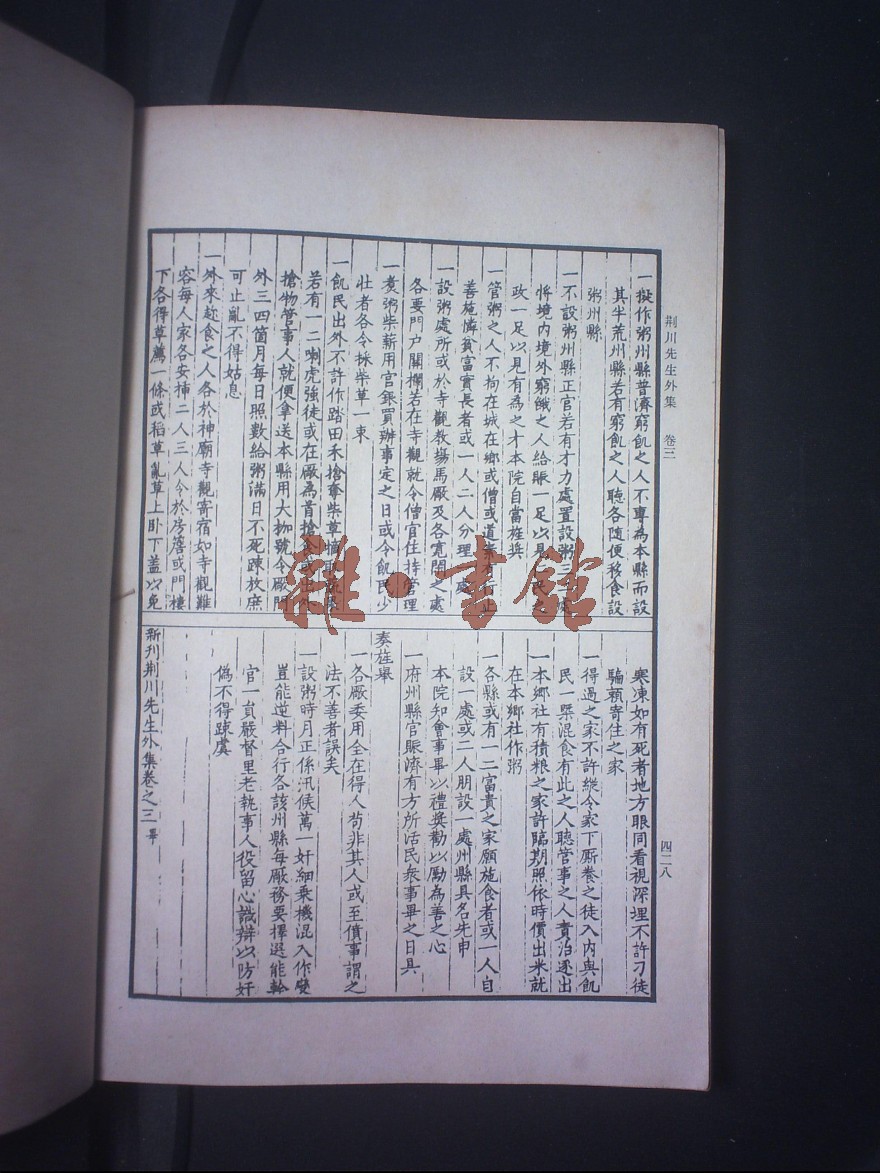 荆川先生外集 卷三
四二八
一擬作粥州縣普濟窮飢之人不專為本縣而設
其半荒州縣若有窮飢之人聽各隨便移食設
粥州縣
一不設粥州縣正官若有才力處置設粥三二處
將境内境外窮餓之人給賑一足以見
政一足以見有為之才本院自當旌奬
一管粥之人不拘在城在鄉或僧或道
善施憐貧富實長者或一人二人分理一處
一設粥處所或於寺觀教塲馬厰及各寛閒之處
各要門户關欄若在寺觀就令僧官住持管理
一煑粥柴薪用官銀買辦事定之日或令飢民少
壯者各令採柴草一束
一飢民出外不許作踏田禾搶奪柴草摘
若有一二喇虎強徒或在厰為首搶食或出外
搶物管事人就便拿送本縣用大枷號令厰門
外三四箇月每日照數給粥滿日不死踈放庶
可止亂不得姑息
一外來趁食之人各於神廟寺觀寄宿如寺觀難
容每人家各安揷二人三人令於房簷或門樓
下各得草薦一條或稻草亂草上卧下盖以免
寒凍如有死者地方眼同看視深埋不許刁徒
騙頼寄住之家
一得過之家不許縱令家下厮養之徒入内與飢
民一槩混食有此之人聽管事之人責治逐出
一本鄉社有積粮之家許臨期照依時價出米就
在本鄉社作粥
一各縣或有一二富貴之家願施食者或一人自
設一處或二人朋設一處州縣具名先申
本院知會事畢以禮奬勸以勵為善之心
一府州縣官賑濟有方所活民衆事畢之日具
奏旌舉
一各厰委用全在得人苟非其人或至僨事謂之
法不善者誤矣
一設粥時月正係汛侯萬一奸細乗機混入作變
豈能逆料合行各該州縣每厰務要擇選能幹
官一員嚴督里老執事人役留心識辯以防奸
偽不得踈虞
新刊荆川先生外集卷之三 畢
雜·書館